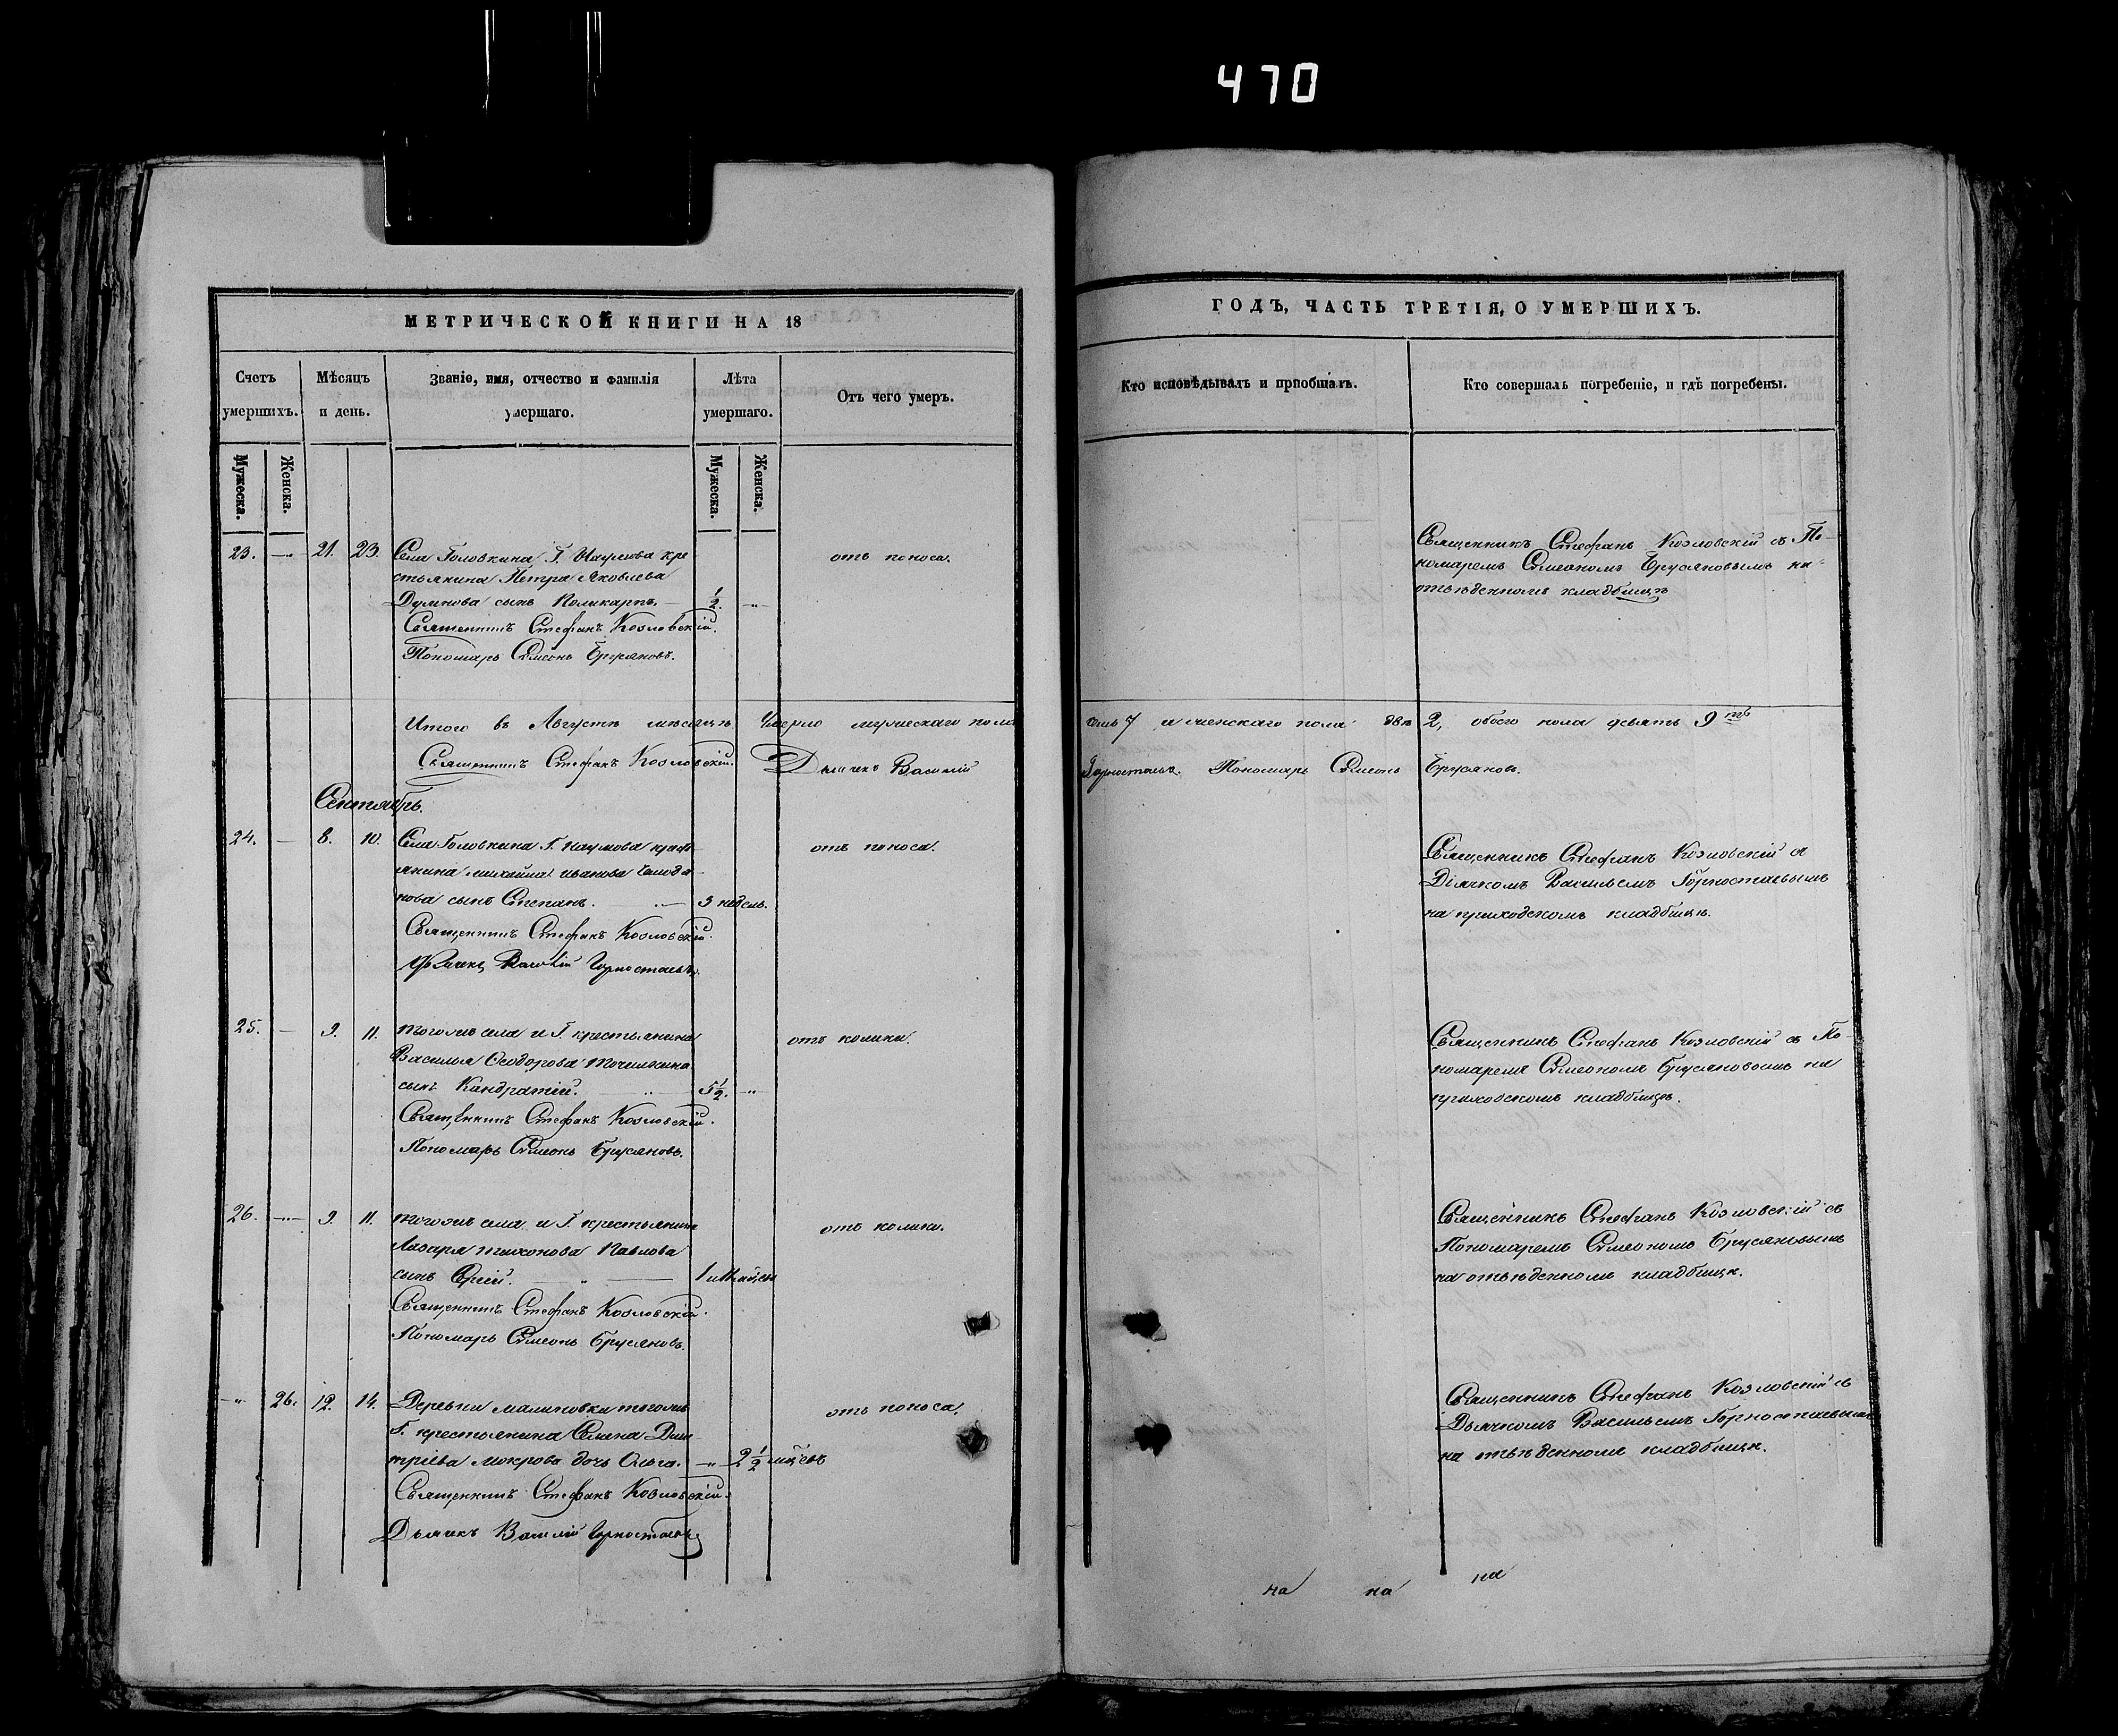 470
МЕТРИЧЕСКОЙ КНИГИ НА 18
Счетъ умершихъ.
Мѣсяцъ и день.
Званіе, имя, отчество и фамилія умершаго.
Лѣта умершаго.
Отъ чего умеръ.
Мужеска.
Женска.
Мужеска.
Женска.
23. — 21. 23. Села Головкина Г. Наумова кре
стьянина Петра Яковлева
Думнова сынъ Поликарпъ. — 1/2. „
отъ поноса.
Священникъ Стефанъ Козловскій.
Пономарь Симеонъ Брусяновъ.
Итого въ Августѣ мѣсяцѣ Умерло мужескаго пола
Священникъ Стефанъ Козловскій. Дьячекъ Василій
Сентябрь.
24. — 8. 10. Села Головкина Г. Наумова крест
янина Михайла Иванова
нова сынъ Степанъ. — 3 недель.
отъ поноса.
Священникъ Стефанъ Козловскій.
Дьячекъ Василій Горностаевъ.
25. — 9. 11. тогожъ села и Г. крестьянина
Василья Ѳеодорова Точилкина
сынъ Кандратій. „ 5 1/2. „
отъ колики.
Священникъ Стефанъ Козловскій.
Пономарь Симеонъ Брусяновъ.
26. — 9. 11. тогожъ села и Г. крестьянина
Лазаря Тихонова Павлова
сынъ
отъ колики.
Священникъ Стефанъ Козловскій.
Пономарь Симеонъ Брусяновъ.
„ 26. 12. 14. Деревни Малиновки тогожъ
Г. крестьянина Семена Дми
тріева Мокрова дочь Ольга. „ 2 1/2 мѣ́сев
отъ поноса.
Священникъ Стефанъ Козловскій.
Дьячекъ Василій Горностаевъ
ГОДЪ, ЧАСТЬ ТРЕТІЯ, О УМЕРШИХЪ.
Кто исповѣдывалъ и пріобщалъ.
Кто совершалъ погребеніе, и гдѣ погребены.
Священникъ Стефанъ Козловскій съ По-
номаремъ Симеономъ Брусяновымъ на
отведенномъ кладбищѣ
семь 7 а женскаго пола двѣ 2, обоего пола девять 9
Горностаевъ. Пономарь Симеонъ Брусяновъ.
Священникъ Стефанъ Козловскій съ
Дьячкомъ Васильемъ Горностаевымъ
на приходскомъ кладбищѣ.
Священникъ Стефанъ Козловскій съ По-
номаремъ Симеономъ Брусяновомъ на
приходскомъ кладбищѣ.
Священникъ Стефанъ Козловскій съ
Пономаремъ Симеономъ Брусяновымъ
на отведенномъ кладбищѣ.
Священникъ Стефанъ Козловскій съ
Дьячкомъ Васильемъ Горностаевымъ
на отведенномъ кладбищѣ.
на на на